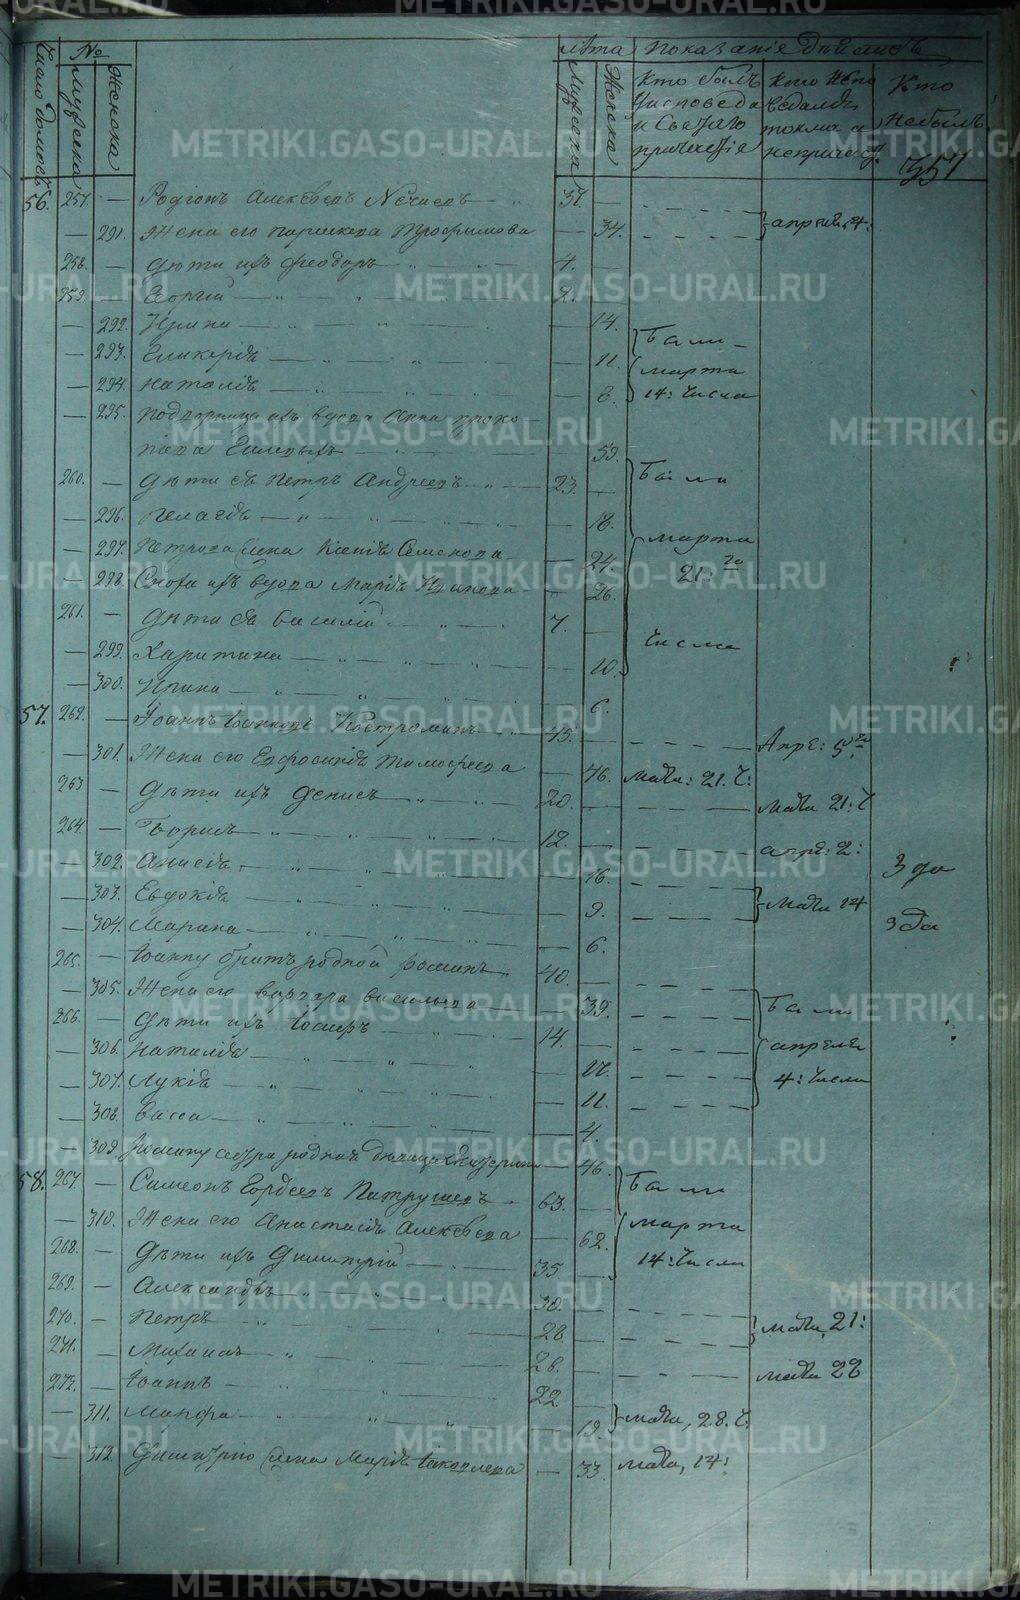 Число домовъ № Мужеска Женска Лѣта Мужеска Женска Показаніе дѣйства
Кто былъ у исповеди и Святаго причастія
Кто исповедался токмо а не причаст.
Кто не былъ
351
56. 257. — Родіонъ Алексѣевъ 37.
— 291. Жена его Параскева Трофимова — 34. апреля, 4:
258. — Дѣти ихъ Феодоръ 4.
259. — Георгій 2.
— 292. Ирина — 14. Были
— 293. Гликерія — 11. марта
— 294. Наталія — 8. 14: Числа
— 295. вдова Анна Проко-
піева — 59.
260. — Дѣти ея Петръ Андреевъ 23. — Были
— 296. Пелагія — 18.
— 297. Петрова жена Ксенія Семенова — 24. марта
— 298. Сноха ихъ вдова Марія Иванова — 26. 21: го
261. — Дѣти ея Василій 7. — Числа
— 299. Харитина — 10.
— 300. Ирина — 6.
57. 262. — Іоаннъ Іоанновъ Костроминъ 45. Апре: 5го
— 301. Жена его Евфросинія Тимофеева — 46. Мата: 21. Ч:
263 — Дѣти ихъ Денисъ 20. Мата 21: Ч
264. — Борисъ 12. апре: 2:
— 302. Анисія — 16.
— 303. Евдокія — 9. Мата 14
— 304. Марина — 6.
265. — Іоанну братъ родной Фоминъ 40.
— 305. Жена его Варвара Васильева — 39. Были
266. — Дѣти ихъ Іосифъ 14. апреля
— 306. Наталія — 17. 4: Числа
— 307. Лукія — 11.
— 308. Васса — 4.
— 309. сестра родная девица Екатерина — 46.
58. 267. — Симеонъ Гордеевъ Патрушевъ 63. — Были
— 310. Жена его Анастасія Алексѣева — 62. марта
268. — Дѣти ихъ Димитрій 35 — 14: Числа
269. — Александръ 30.
270. — Петръ 28. Мата, 21:
271. — Михаилъ 26. Мата 28
272. — Іоаннъ 22.
— 311. Марфа — 19. Мата, 28. Ч.
— 312. Димитрію жена Марія Іаковлева — 33. Мата, 14:
METRIKI.GASO-URAL.RU